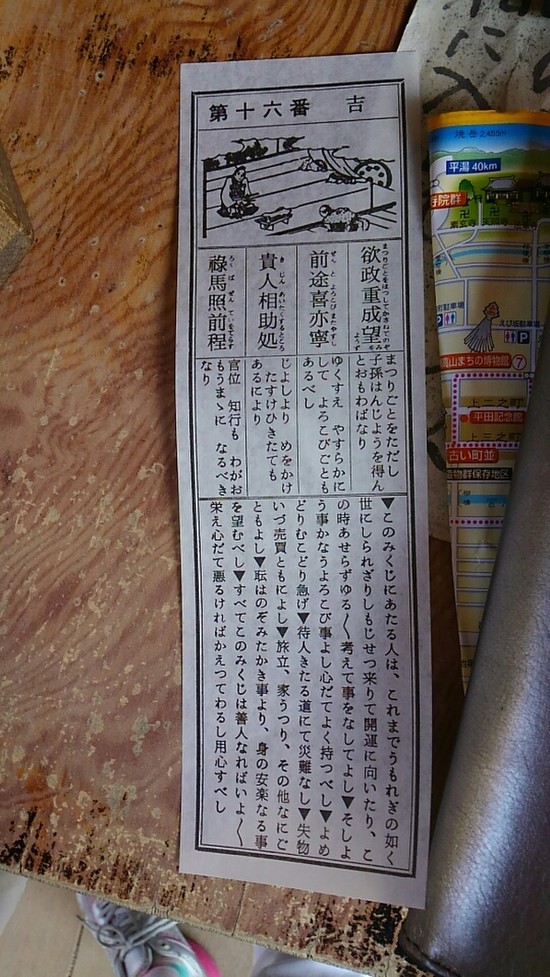 第十六番 吉
欲改重成望
前途喜亦寧
貴人相助処
祿馬照前程
まつりごとをただし
子孫はんじようを得ん
とおもわばなり
ゆくすえ やすらかに
して よろこびごとも
あるべし
じよしより めをかけ
たすけひきたても
あるにより
官位 知行も わがお
もうまゝに なるべき
なり
▼このみくじにあたる人は、これまでうもれぎの如く
世にしられざりしもじせつ来りて開運に向いたり、こ
の時あせらずゆる〳〵考えて事をなしてよし▼そしよ
う事かなうよろこび事よし心だてよく持つべし▼よめ
どりむこどり急げ▼待人きたる道にて災難なし▼失物
いづ売買ともによし▼旅立、家うつり、その他なにご
ともよし▼転はのぞみたかき事より、身の安楽なる事
を望むべし▼すべてこのみくじは善人なればいよ〳〵
栄え心だて悪るければかえつてわるし用心すべし
焼岳 2,455m
平湯 40km
寺院群
素玄寺
駐車場
えび坂駐車場
高山まちの博物館 ⑦
上二之町
平田記念館
上三之町
古い町並
造物群保存地区
に
入